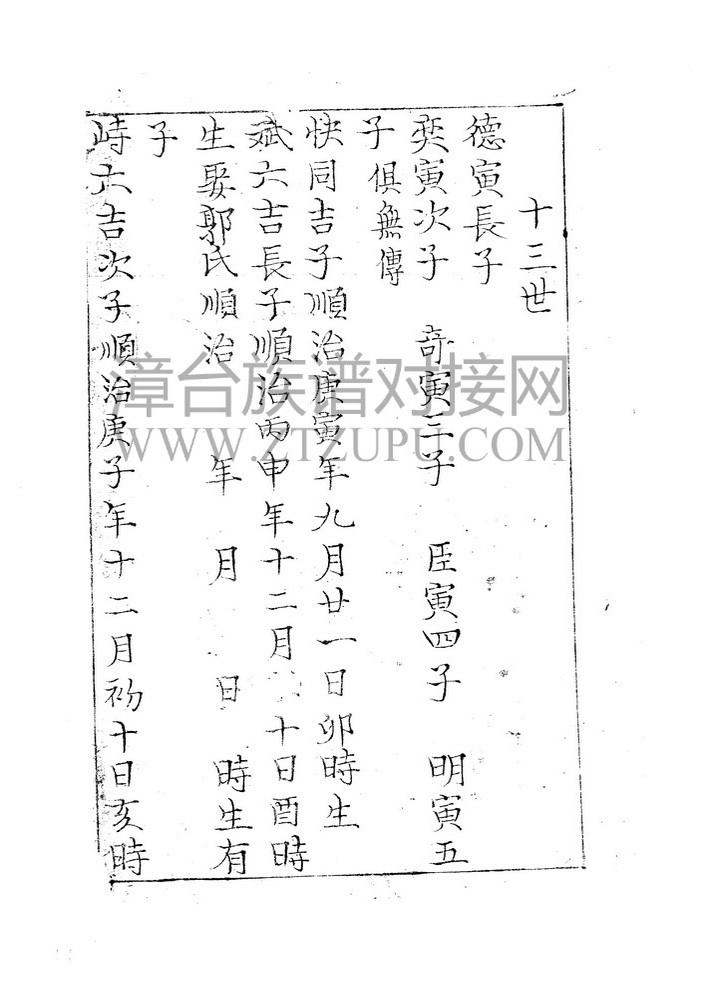 十三世
德寅長子
奕寅次子　奇寅三子　臣寅四子　明寅五
子俱無傳
快同吉子順治庚寅年九月廿一日卯時生
斌六吉長子順治丙申年十二月 十日酉時
生娶郭氏順治　年　月　日　時生有
子
峙六吉次子順治庚子年十二月初十日亥時
漳台族谱对接网
WWW.ZTZUPU.COM